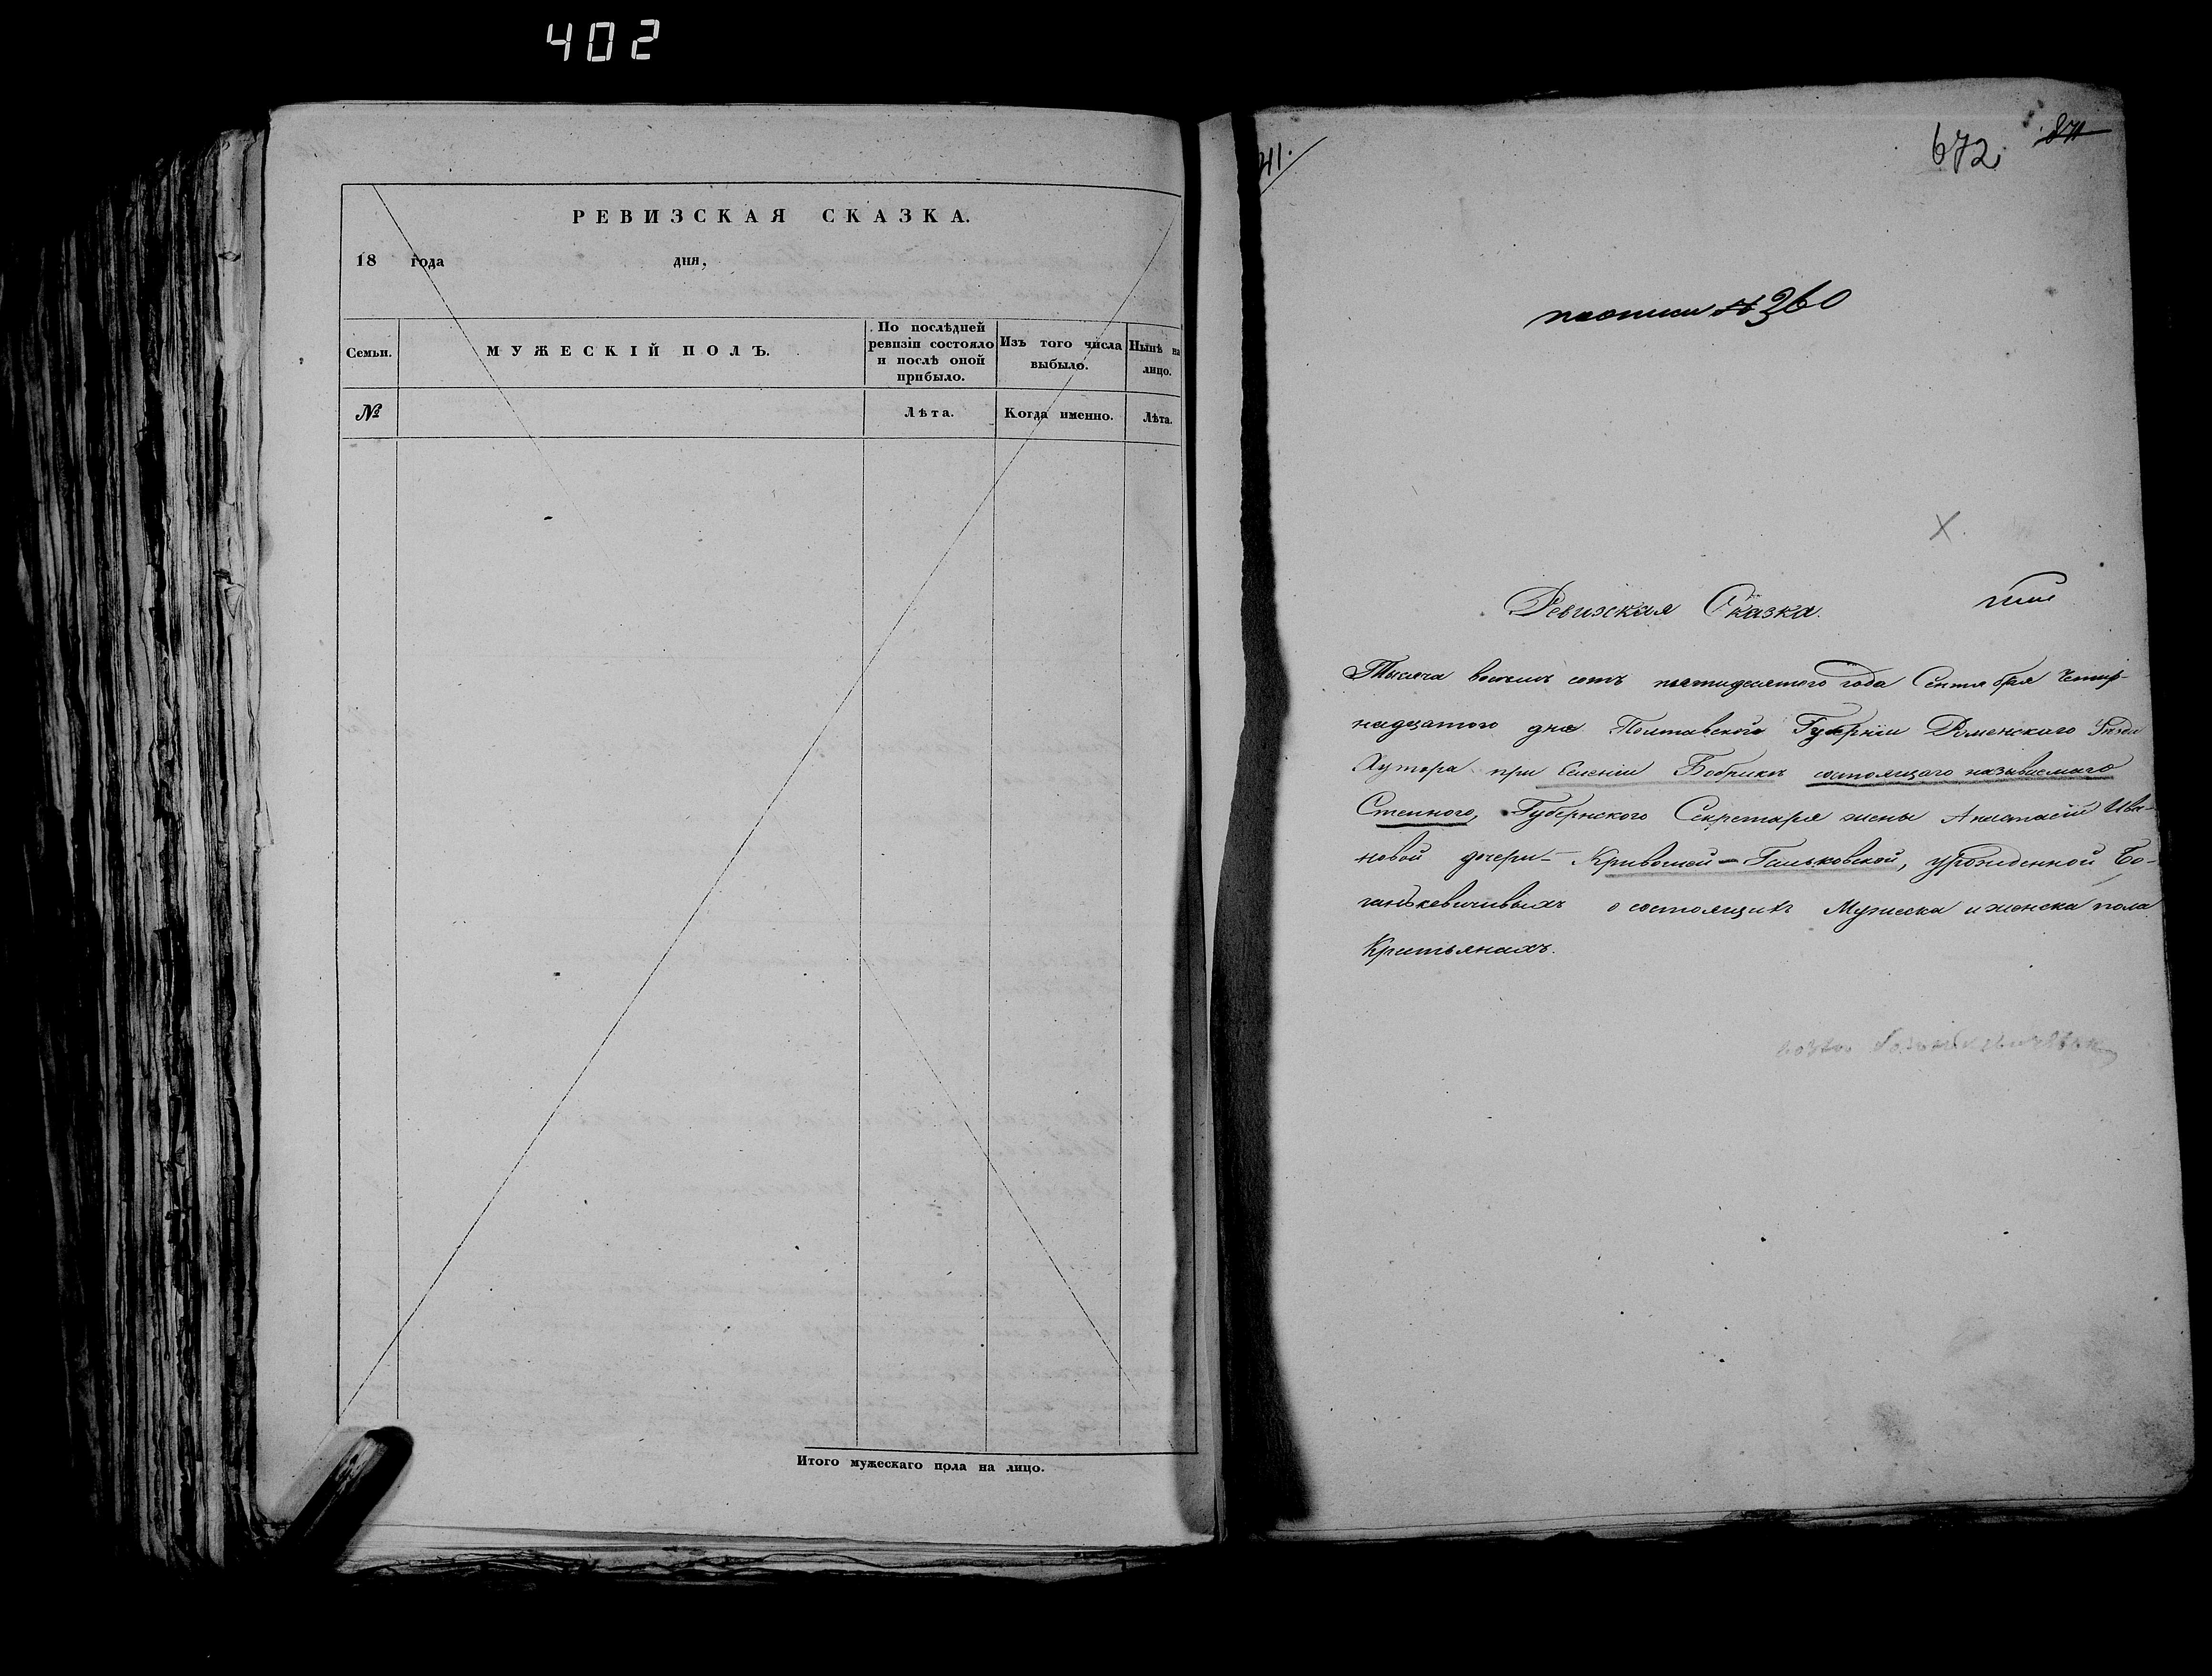 402
РЕВИЗСКАЯ СКАЗКА.
18 года дня,
Семьи.
МУЖЕСКІЙ ПОЛЪ.
По послѣдней ревизіи состояло и послѣ оной прибыло.
Изъ того числа выбыло.
Нынѣ на лицо.
№
Лѣта.
Когда именно.
Лѣта.
Итого мужескаго пола на лицо.
41.
672. 871
по описи № 360
Ревизская Сказка.
Тысяча восемь сотъ пятидесятого года Сентября Четыр-
надцатого дня Полтавского Губерніи Роменского Уѣзда
Хутора при Селеніи Бобрикѣ состоящаго называемаго
Степного, Губернского Секретаря жены Анастасіи Ива-
новой дочери Кривошей-Гальковской, урожденной Бо-
ганькевичивыхъ о состоящихъ Мужеска и женска пола
Крестьянахъ.